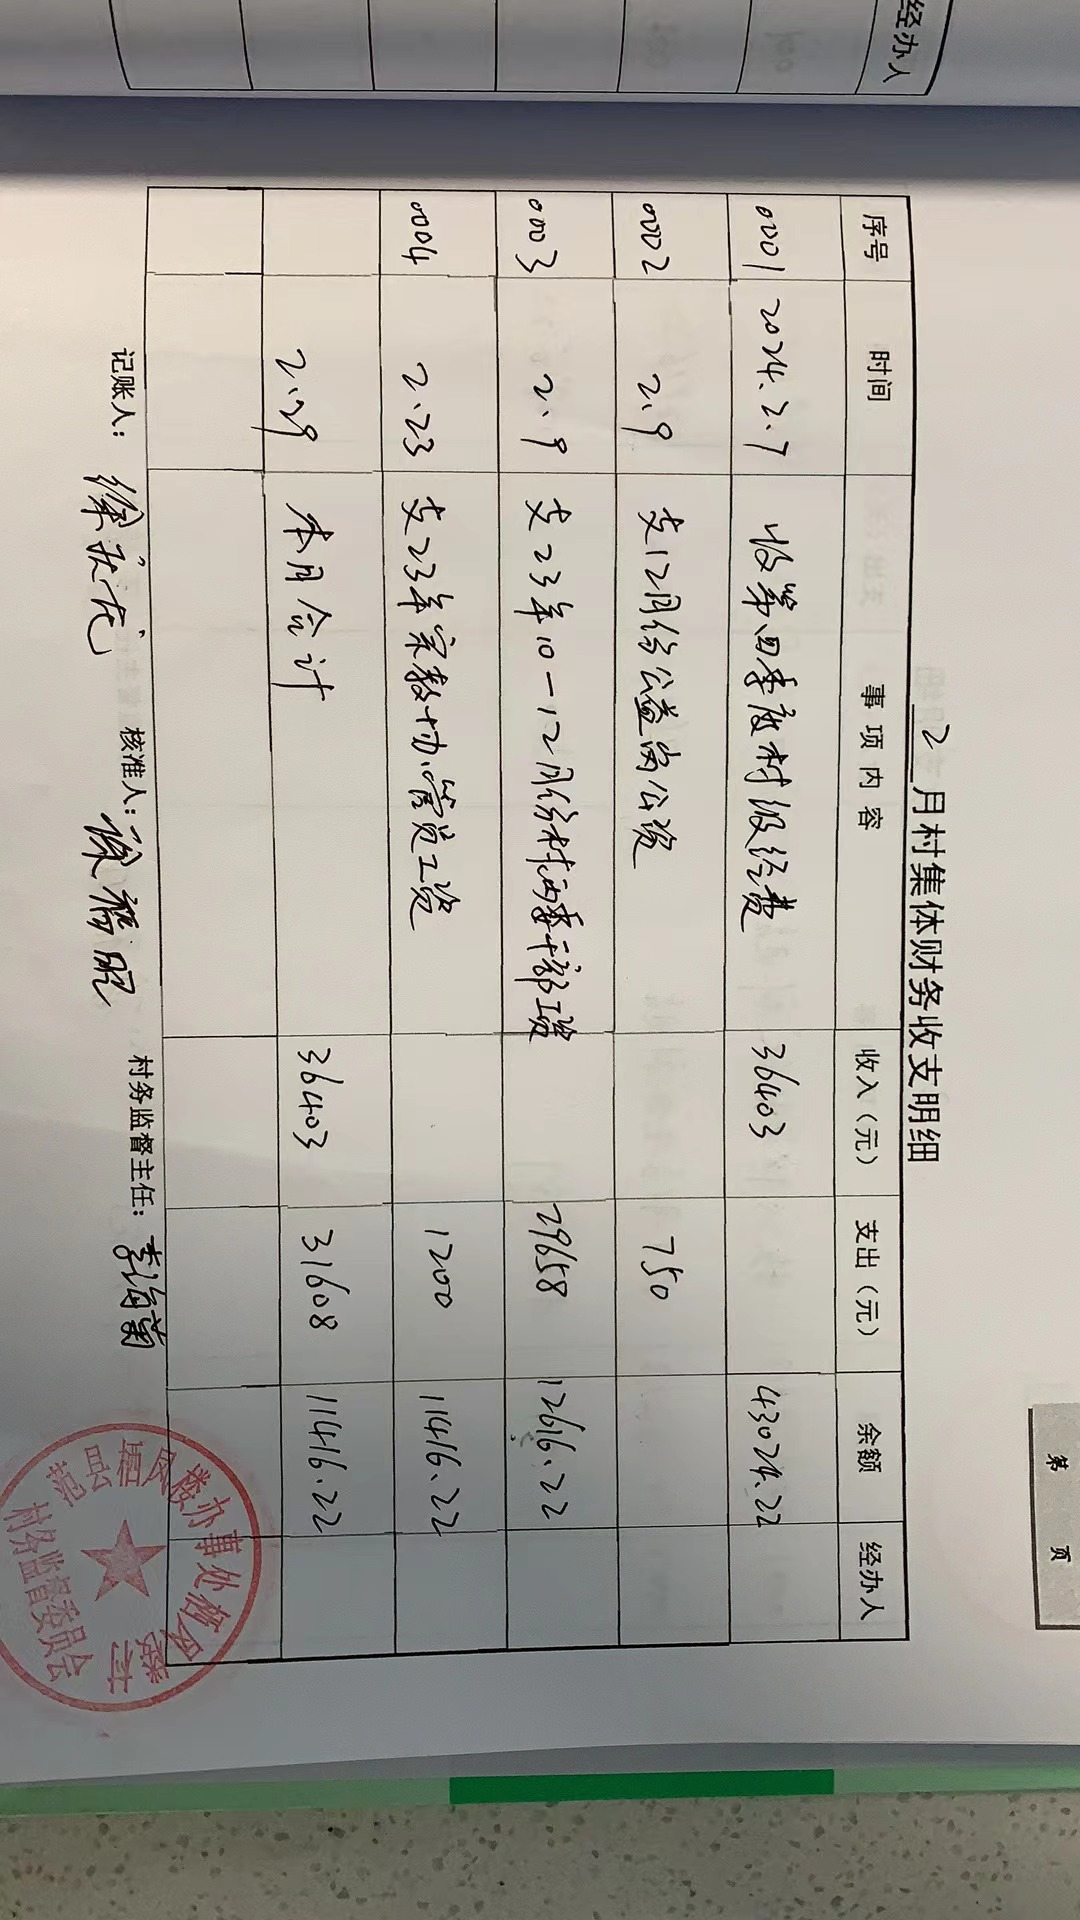 经办人
第 页
2 月村集体财务收支明细
序号 时间 事项内容 收入(元) 支出(元) 余额 经办人
0001 2024.2.7 收第四季度村级经费 36403 43024.22
0002 2.9 支12月份公益岗公资 750
0003 2.9 支23年10-12月份村两委干部工资 29658 12616.22
0004 2.23 支23年宗教协管员工资 1200 11416.22
2.29 本月合计 36403 31608 11416.22
记账人: 徐 核准人: 徐 村务监督主任: 李海菊
范县栖凤楼办事处栖凤楼村
村务监督委员会